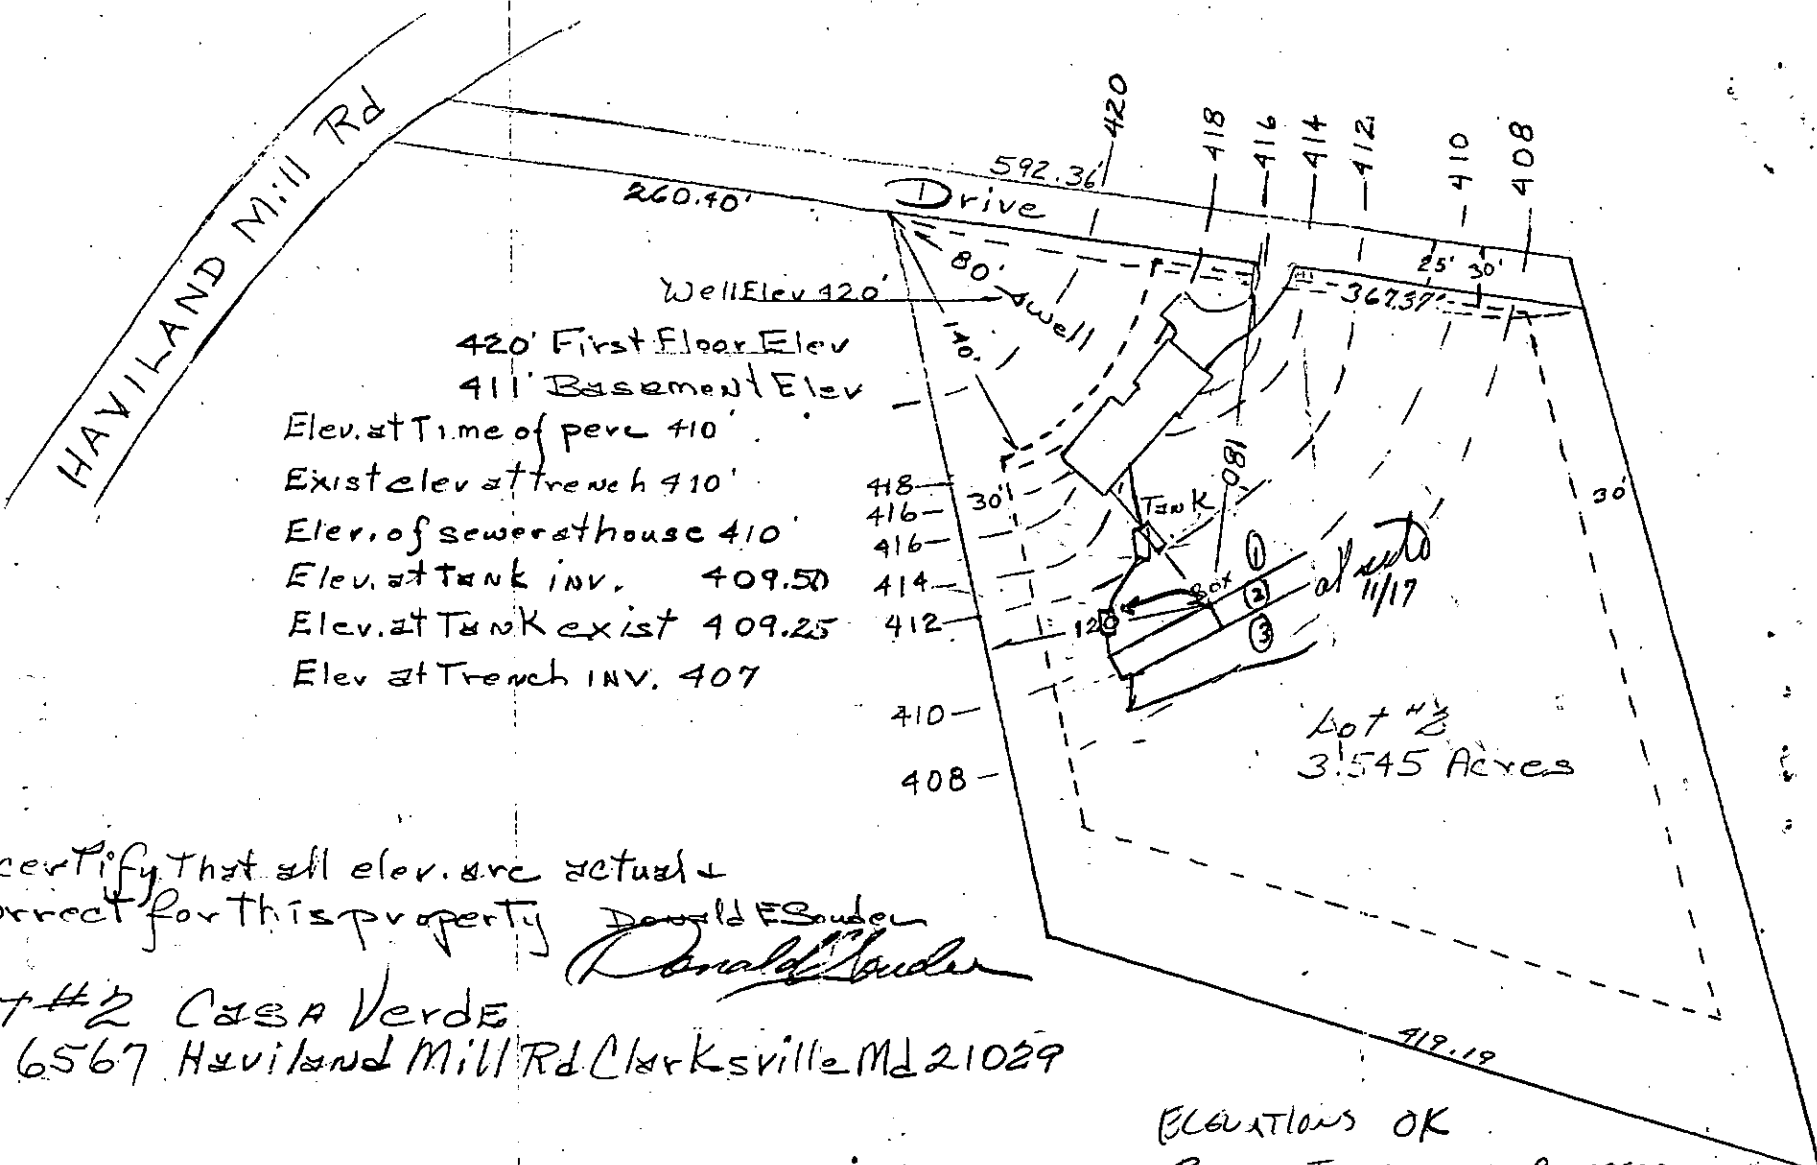 HAVILAND Mill Rd
592.36'
260.40'
Drive
420
418
416
414
412
410
408
25' 30'
367.37'
80'
Well
Well Elev 420'
140'
420' First Floor Elev
411' Basement Elev
Elev. at Time of perc 410'
Exist elev at trench 410'
Elev. of sewer at house 410'
Elev. at Tank inv. 409.50
Elev. at Tank exist 409.25
Elev at Trench INV. 407
418
416
416
414
412
410
408
30'
180
Tank
Box
120
1
2
3
11/17
30'
Lot #2
3.545 Acres
certify That all elev. are actual &
orrect for this property Donald E Souder
Donald E Souder
t #2 Casa Verde
6567 Haviland Mill Rd Clarksville Md 21029
419.19
ELEVATIONS OK